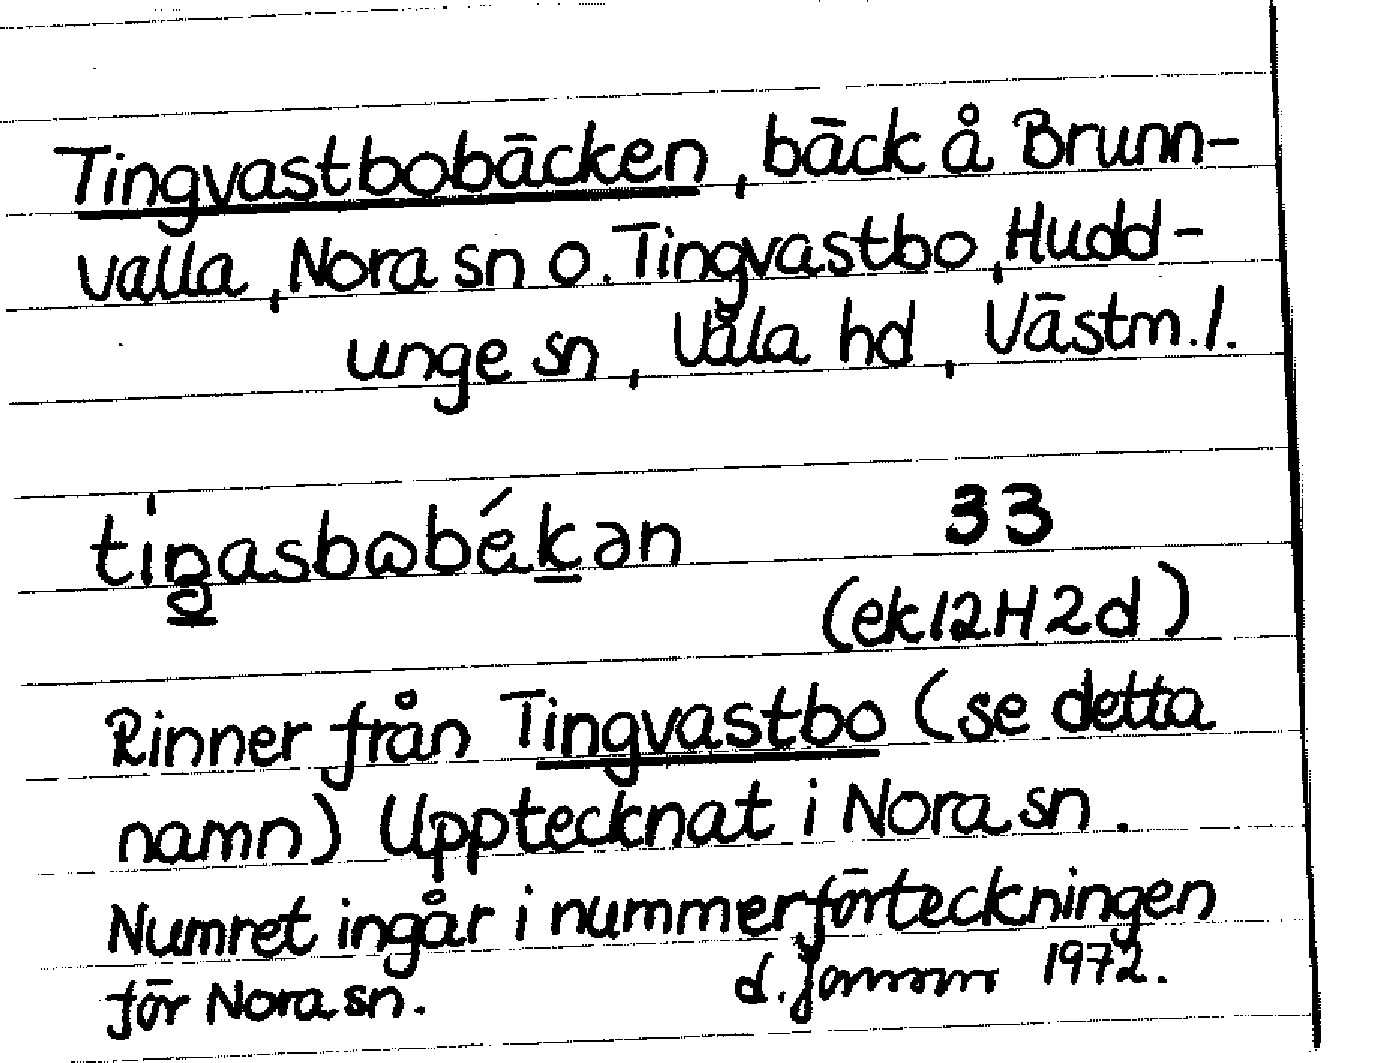 Tingvastbobäcken, bäck å Brunn-
valla, Nora sn o. Tingvastbo, Hudd-
unge sn, Våla hd, Västm.l.
33
(ek 12H2d)
Rinner från Tingvastbo (se detta
namn) Upptecknat i Nora sn.
Numret ingår i nummerförteckningen
för Nora sn. 1972.